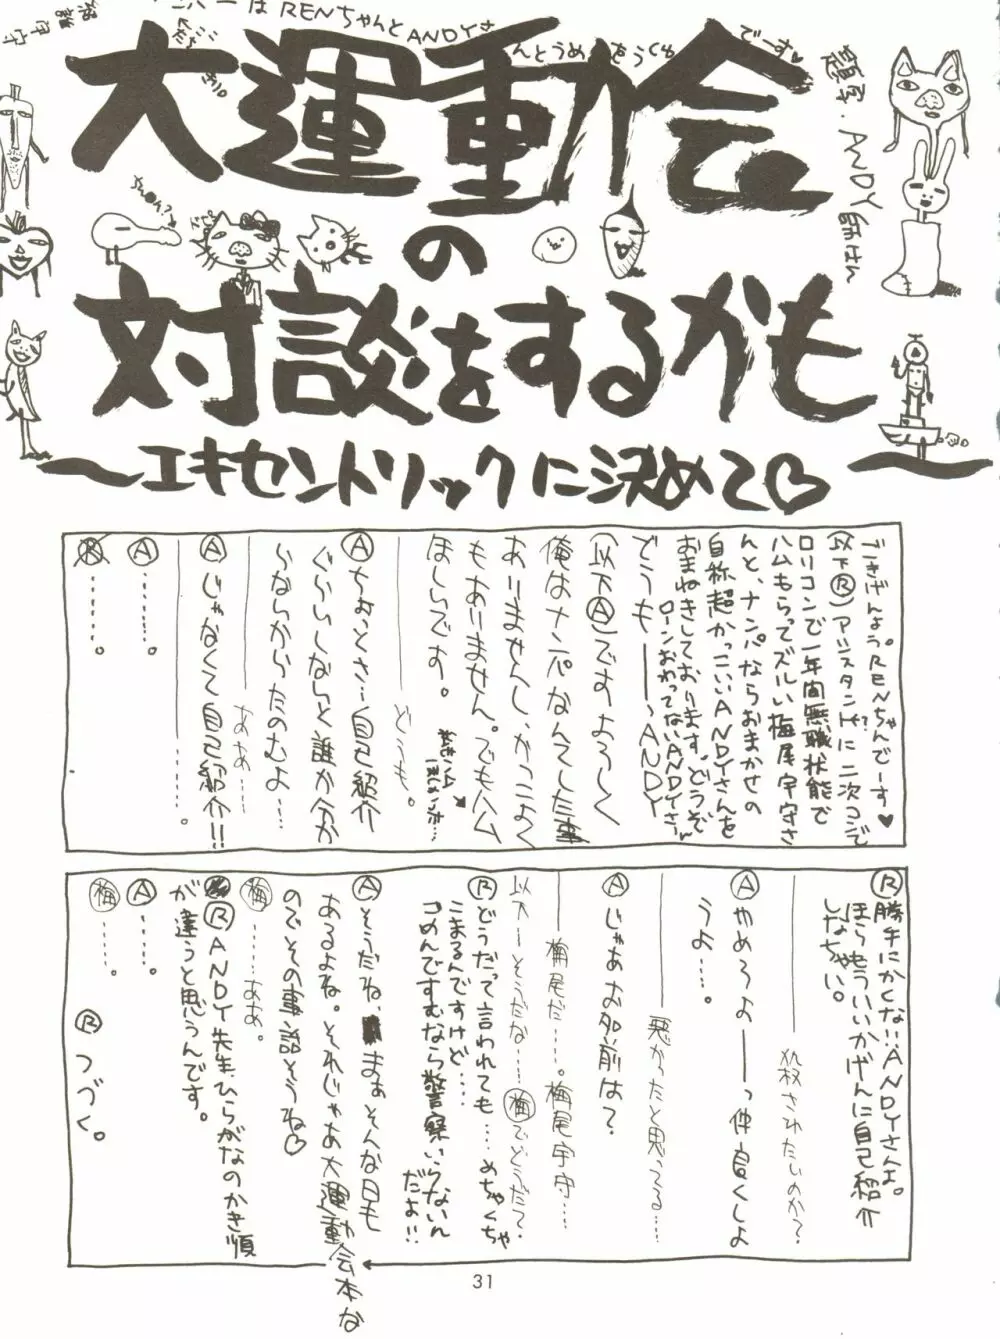 はRENちゃんとANDYさ
んとうめ
をうくゅ
でーす♥
大運動会
の
対談をするかも
〜エキセントリックに決めて♡〜
題字・ANDY師はん
ごきげんよう。RENちゃんでーす♥
(以下Ⓡ)アシスタントに二次コンで
ロリコンで一年間無職状態で
ハムもらってズルい梅尾宇守さ
んと、ナンパならおまかせの
自称超かっこいいANDYさんを
おまねきしております。どうぞ
ローンおわってないANDYさん
でうも―――〜ANDY
(以下Ⓐ)ですよろしく
俺はナンパなんてした事
ありませんし、かっこよく
もありません。でもハム
ほしいです。
―――どうも。
Ⓐちょっとさ…自己紹介
ぐらいしないと誰か分か
らないからたのむよ…
―――ああ…
Ⓐじゃなくて自己紹介!!
―――…………。
Ⓐ………。
Ⓡ………。
Ⓡ勝手にかくない!ANDYさんよ。
ほらもういいかげんに自己紹介
しなちい。
―――殺されたいのか?
Ⓐやめろよ―――っ仲良くしよ
うよ……。
―――悪かったと思ってる…
Ⓐじゃあお前は?
―――梅尾だ……。梅尾宇守…
以下―そうだな…㊗でどうだ?
Ⓡどうだって言われても…めちゃくちゃ
こまるんですけど……
ゴめんですすむなら警察いらないん
だよ!!
Ⓐそうだね、まぁそんな日も
あるよね。それじゃあ大運動会本な
のでその事話そうね♡
梅……ああ。
ⓇANDY先生、ひらがなのかき順
が違うと思うんです。
Ⓐ……。
梅……。
Ⓡつづく。
31